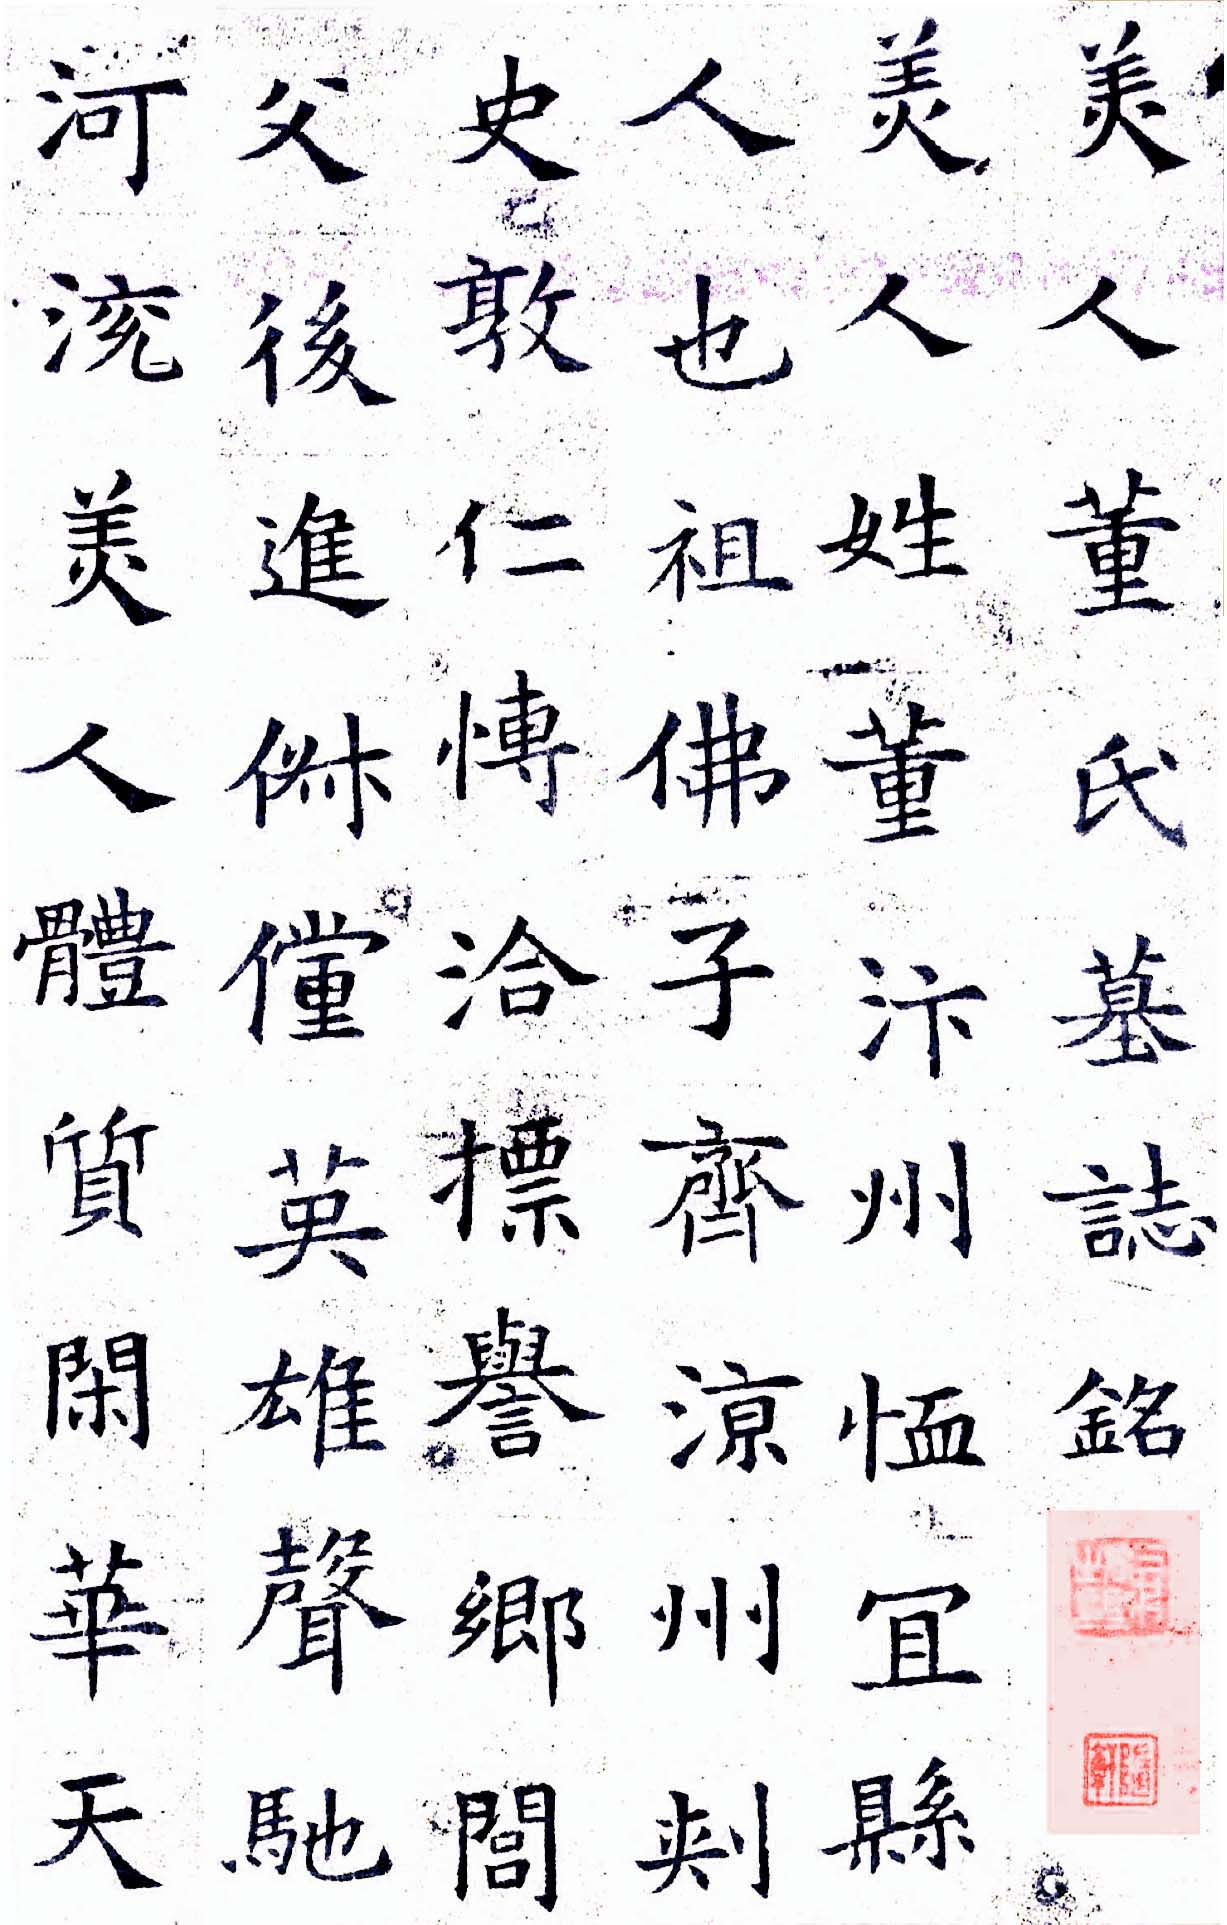 美人董氏墓誌銘
美人姓董汴州恤冝縣
人也祖佛子齊涼州刺
史敦仁愽洽摽譽鄉閭
父後進俶儻英雄聲馳
河浣美人體質閑華天